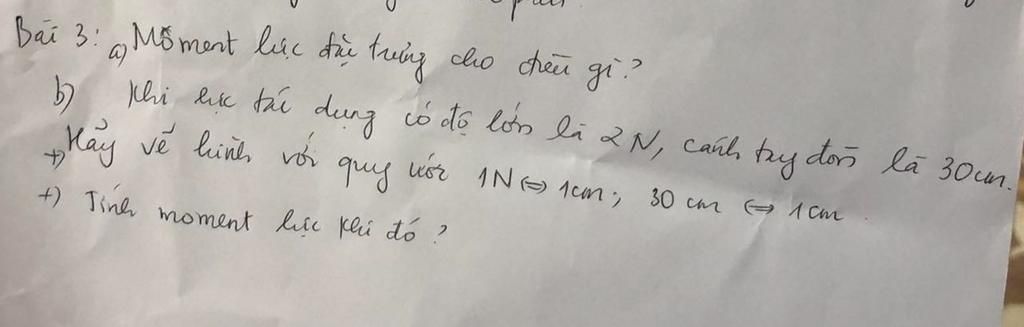 Bài 3: a) Môment lực đặc trưng cho điều gì?
b) Khi lực tác dụng có độ lớn là 2N, cánh tay đòn là 30cm.
+) Hãy vẽ hình với quy ước 1N ⇔ 1cm; 30 cm ⇔ 1cm.
+) Tính moment lực khi đó?